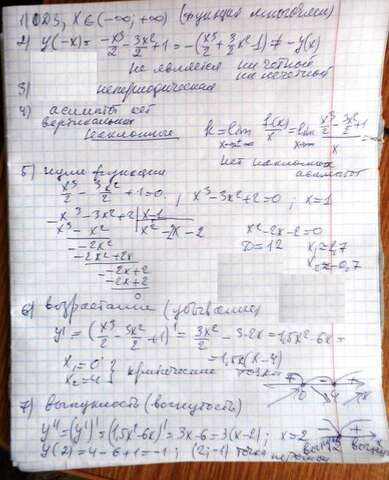 1) ОДЗ, X ∈ (-∞; +∞) (функция многочлен)
2) y(-x) = -x³/2 - 3x²/2 + 1 = -(x³/2 + 3/2 x² - 1) ≠ -y(x)
Не является ни четной
ни нечетной
3) непериодическая
4) асимптот нет
вертикальных
наклонные k = lim f(x)/x = lim (x³/2 - 3x²/2 + 1)/x
нет наклонных
асимптот
5) нули функции
x³/2 - 3x²/2 + 1 = 0 ; x³ - 3x² + 2 = 0 ; x = 1
- x³ - 3x² + 2 | x - 1
x³ - x² | x² - 2x - 2
- -2x²
-2x² + 2x
- -2x + 2
-2x + 2
0
x² - 2x - 2 = 0
D = 12 x₁ = 2,7
x₂ = -0,7
6) возрастание (убывание)
y' = (x³/2 - 3x²/2 + 1)' = 3x²/2 - 3·2x = 1,5x² - 6x =
= 1,5x(x - 4)
x₁ = 0 } критические точки
x₂ = 4
+ 0 - 4 + x
7) выпуклость (вогнутость)
y'' = (y')' = (1,5x² - 6x)' = 3x - 6 = 3(x - 2) ; x = 2
y(2) = 4 - 6 + 1 = -1 ; (2; -1) точка перегиба
- 2 +